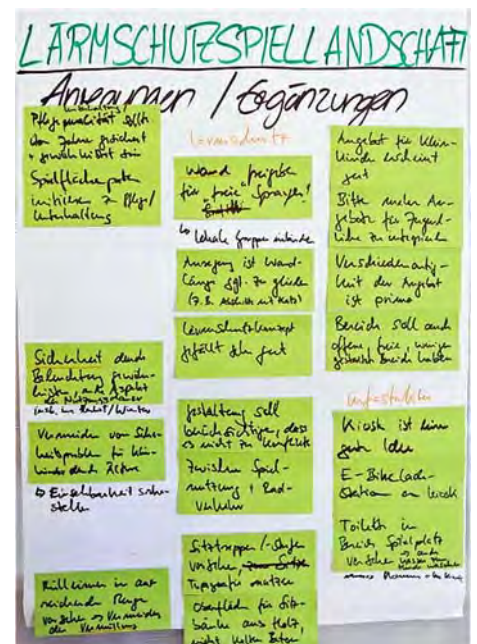 LÄRMSCHUTZSPIELLANDSCHAFT
Anregungen / Ergänzungen
Unterhaltung/
Pflegequalität sollte
über Jahre gesichert
+ gewährleistet sein
Spielflächenpaten
initiieren zu Pflege/
Unterhaltung
Sicherheit durch
Beleuchtung gewähr-
leisten, auch Aspekt
der Nutzungsdauer
insb. im Herbst/Winter
Vermeiden von Siche-
heitsproblem für Klein-
kinder durch Ältere
↳ Einsehbarkeit sicher-
stellen
Mülleimer in aus
reichender Menge
vorsehen → Vermeiden
der Vermüllung
Lärmschutz
Wand freigeben
für "freie" Sprayer!
↳ lokale Gruppen einbinden
Anregung ist Wand-
länge ggf. zu gliedern
(z.B. Abschnitt mit Holz)
Lärmschutzkonzept
gefällt sehr gut
Gestaltung soll
berücksichtigen, dass
es nicht zu Konflikte
zwischen Spiel-
nutzung + Rad-
verkehr
Sitztreppen/-stufen
vorsehen
Topografie nutzen
Oberfläche für Sitz-
bänke aus Holz,
nicht kalter Beton
Angebot für Klein-
kinder erscheint
gut
Bitte mehr An-
gebote für Jugend-
liche zu integrieren
Verschiedenartig-
keit der Angebot
ist prima
Bereich soll auch
offene, freie, weniger
gestaltete Bereich haben
Infrastruktur
Kiosk ist eine
gute Idee
E-Bike Lade-
station am Kiosk
Toilette im
Bereich Spielplatz
vorsehen